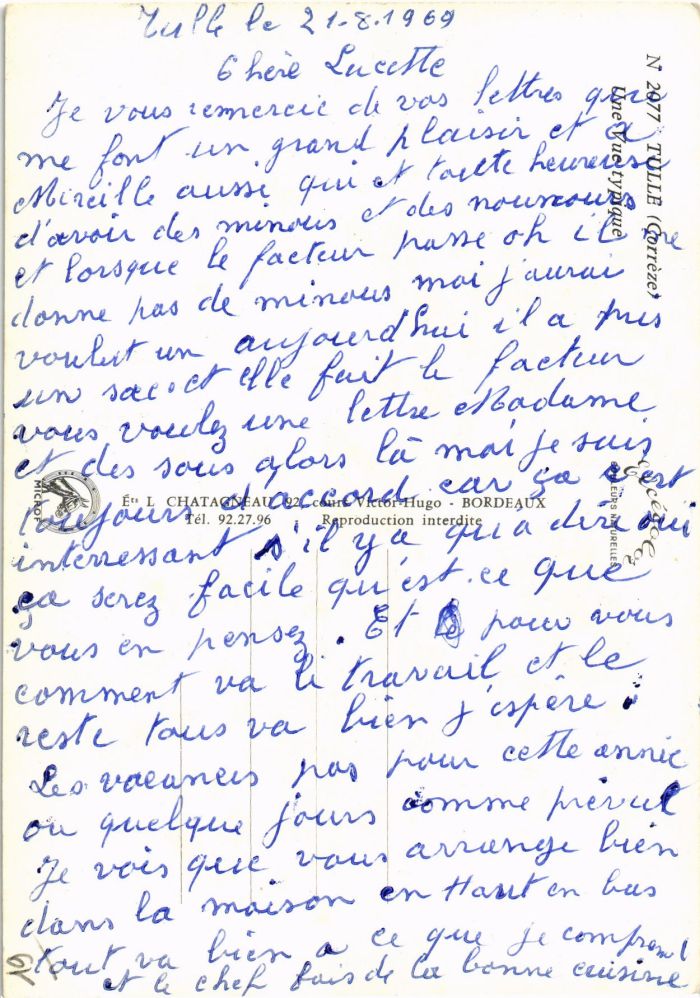 Tulle le 21-8-1969
Chère Lucette
Je vous remercie de vos lettres qui
me font un grand plaisir et a
Mireille aussi qui et toute heureuse
d'avoir des minous et des nounours
et lorsque le facteur passe oh il me
donne pas de minous moi j'aurai
voulut un aujourd'hui il a pris
un sac et elle fait le facteur
vous voulez une lettre Madame
et des sous alors là moi je suis
toujours d'accord car ça c'est
interressant s'il y a qu'a dire oui
ça serez facile qu'est-ce que
vous en pensez. Et pour vous
comment va le travail et le
reste tous va bien j'espère.
Les vacances pas pour cette année
ou quelque jours comme prévut
Je vois que vous arrange bien
dans la maison en Haut en bas
tout va bien a ce que je comprend
et le chef fais de la bonne cuisine
N 2077 TULLE (Corrèze)
Une Vue typique
MICROF
Éts L CHATAGNEAU 92, cours Victor-Hugo - BORDEAUX
Tél. 92.27.96 Reproduction interdite
COULEURS NATURELLES
19